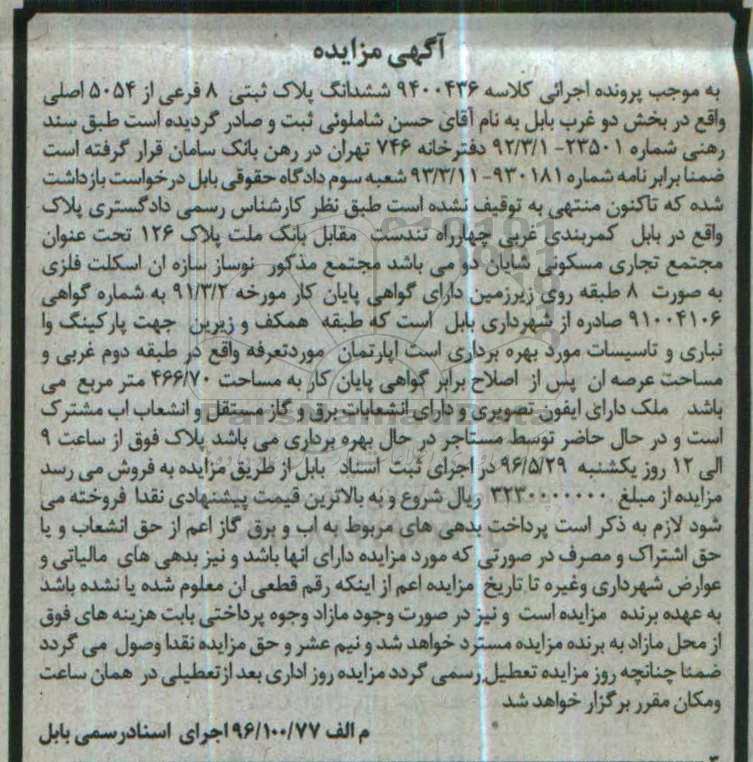 آگهی مزایده
به موجب پرونده اجرائی کلاسه ۹۴۰۰۴۳۶ ششدانگ پلاک ثبتی ۸ فرعی از ۵۰۵۴ اصلی
واقع در بخش دو غرب بابل به نام آقای حسن شاملوئی ثبت و صادر گردیده است طبق سند
رهنی شماره ۲۳۵۰۱-۹۲/۳/۱ دفترخانه ۷۴۶ تهران در رهن بانک سامان قرار گرفته است
ضمنا برابر نامه شماره ۹۳۰۱۸۱-۹۳/۳/۱۱ شعبه سوم دادگاه حقوقی بابل درخواست بازداشت
شده که تاکنون منتهی به توقیف نشده است طبق نظر کارشناس رسمی دادگستری پلاک
واقع در بابل کمربندی غربی چهارراه تندست مقابل بانک ملت پلاک ۱۲۶ تحت عنوان
مجتمع تجاری مسکونی شایان دو می باشد مجتمع مذکور نوساز سازه ان اسکلت فلزی
به صورت ۸ طبقه روی زیرزمین دارای گواهی پایان کار مورخه ۹۱/۳/۲ به شماره گواهی
۹۱۰۰۴۱۰۶ صادره از شهرداری بابل است که طبقه همکف و زیرین جهت پارکینگ وا
نباری و تاسیسات مورد بهره برداری است اپارتمان موردتعرفه واقع در طبقه دوم غربی و
مساحت عرصه ان پس از اصلاح برابر گواهی پایان کار به مساحت ۴۶۶/۷۰ متر مربع می
باشد ملک دارای ایفون تصویری و دارای انشعابات برق و گاز مستقل و انشعاب اب مشترک
است و در حال حاضر توسط مستاجر در حال بهره برداری می باشد پلاک فوق از ساعت ۹
الی ۱۲ روز یکشنبه ۹۶/۵/۲۹ در اجرای ثبت اسناد بابل از طریق مزایده به فروش می رسد
مزایده از مبلغ ۳۲۳۰۰۰۰۰۰۰۰ ریال شروع و به بالاترین قیمت پیشنهادی نقدا فروخته می
شود لازم به ذکر است پرداخت بدهی های مربوط به اب و برق گاز اعم از حق انشعاب و یا
حق اشتراک و مصرف در صورتی که مورد مزایده دارای انها باشد و نیز بدهی های مالیاتی و
عوارض شهرداری وغیره تا تاریخ مزایده اعم از اینکه رقم قطعی ان معلوم شده یا نشده باشد
به عهده برنده مزایده است و نیز در صورت وجود مازاد وجوه پرداختی بابت هزینه های فوق
از محل مازاد به برنده مزایده مسترد خواهد شد و نیم عشر و حق مزایده نقدا وصول می گردد
ضمنا چنانچه روز مزایده تعطیل رسمی گردد مزایده روز اداری بعد ازتعطیلی در همان ساعت
ومکان مقرر برگزار خواهد شد
م الف ۹۶/۱۰۰/۷۷ اجرای اسنادرسمی بابل